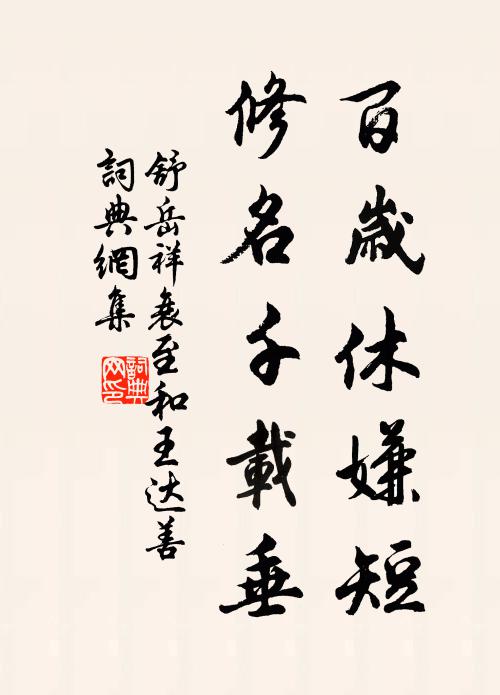 百歲休嫌短
修名千載垂
舒岳祥衰至和王达善
詞典網集
詞典網印